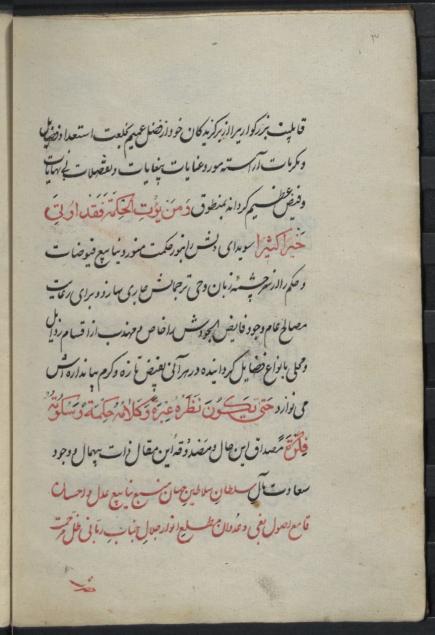 قابلیت بزرگواریرا از برگزیدگان خود از فضل عمیم بخلعت استعداد و فضایل
و مکرمات آراسته مورد عنایات بیغایات و تفضلات بی نهایات
و فیض عظیم گردانه بمنطوق و من یوت الحکمة فقد اوتی
خیرا کثیرا سویدای دلش را نور حکمت منور و ینابیع فیوضات
و حکم را از سرچشمهٔ زبان وحی ترجمانش جاری سازد و برای رعایت
مصالح عام وجود فایض الجودش را خاص و مهذب از اقسام رذایل
و محلی بانواع فضایل گردانیده در هر آنی بفیض تازه و کرم بی اندازه اش
می نوازد حتی یکون نظره عبرة و کلامه حکمة و سکوته
فکرة مصداق این حال و مصدوقهٔ این مقال ذات بیهمال و وجود
سعادت مآل سلطان سلاطین جهان منبع ینابیع عدل و احسان
قامع اصول بغی و عدوان مطلع انوار جلال جناب ربانی ظل مرحمت